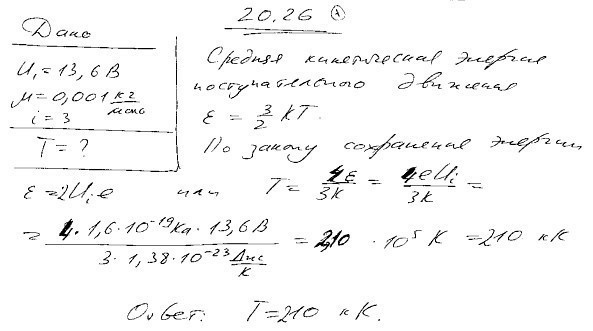 20.26 А
Дано
U₁ = 13,6 В
μ = 0,001 кг/моль
i = 3
T = ?
Средняя кинетическая энергия
поступательного движения
ε = 3/2 kT.
По закону сохранения энергии
ε = 2Uᵢe или T = 4ε/3k = 4eUᵢ/3k =
= 4 · 1,6 · 10⁻¹⁹ Кл · 13,6 В / 3 · 1,38 · 10⁻²³ Дж/К = 2,10 · 10⁵ К = 210 кК
Ответ: T = 210 кК.